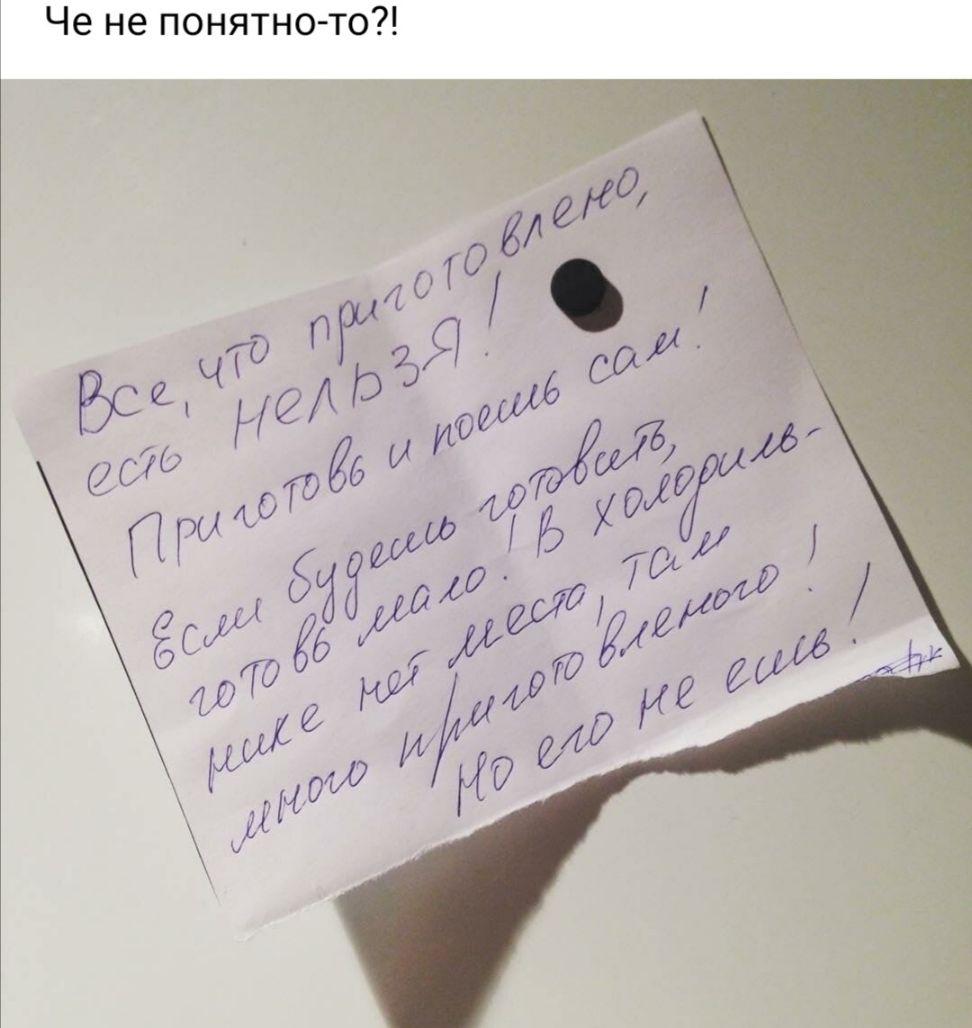 Че не понятно-то?!
Все, что приготовлено,
есть НЕЛЬЗЯ!
Приготовь и поешь сам!
Если будешь готовить,
готовь мало! В холодиль-
нике нет места, там
много приготовленого!
Но его не ешь!